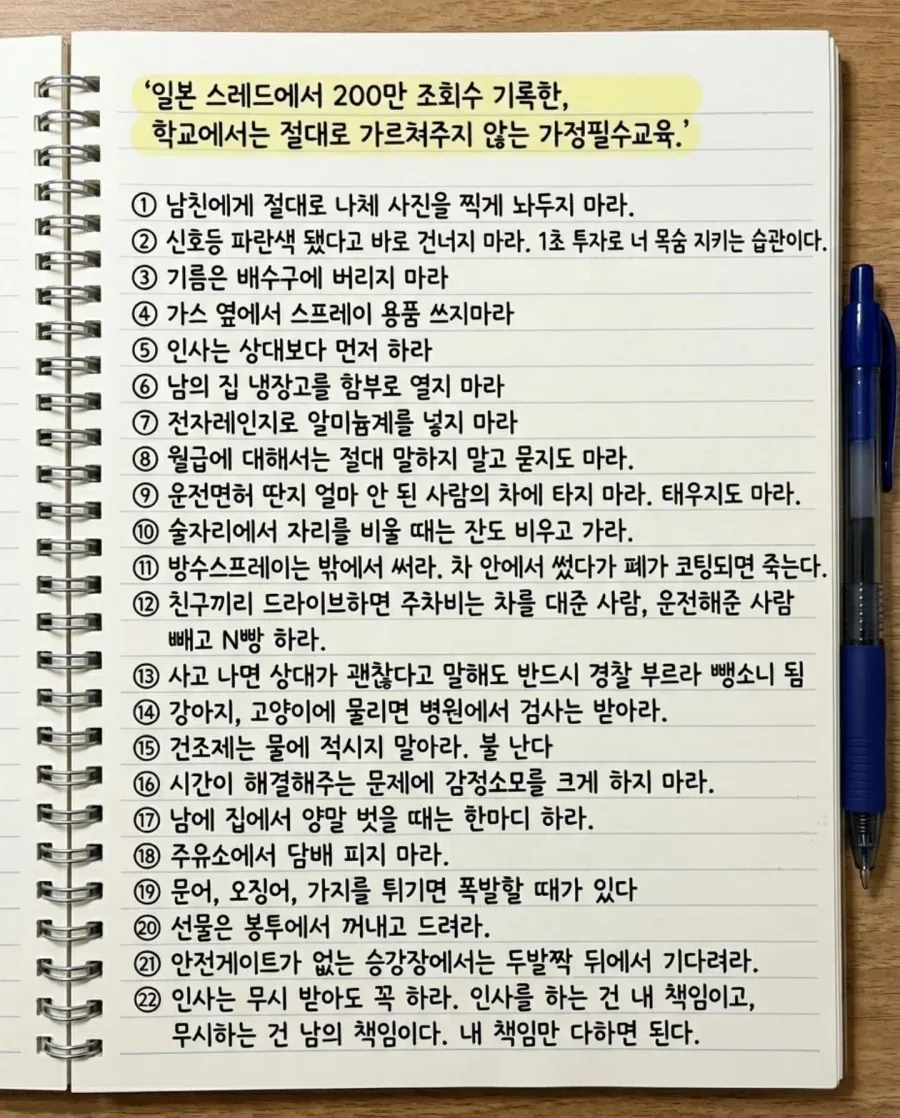 '일본 스레드에서 200만 조회수 기록한,
학교에서는 절대로 가르쳐주지 않는 가정필수교육.'
① 남친에게 절대로 나체 사진을 찍게 놔두지 마라.
② 신호등 파란색 됐다고 바로 건너지 마라. 1초 투자로 너 목숨 지키는 습관이다.
③ 기름은 배수구에 버리지 마라
④ 가스 옆에서 스프레이 용품 쓰지마라
⑤ 인사는 상대보다 먼저 하라
⑥ 남의 집 냉장고를 함부로 열지 마라
⑦ 전자레인지로 알미늄계를 넣지 마라
⑧ 월급에 대해서는 절대 말하지 말고 묻지도 마라.
⑨ 운전면허 딴지 얼마 안 된 사람의 차에 타지 마라. 태우지도 마라.
⑩ 술자리에서 자리를 비울 때는 잔도 비우고 가라.
⑪ 방수스프레이는 밖에서 써라. 차 안에서 썼다가 폐가 코팅되면 죽는다.
⑫ 친구끼리 드라이브하면 주차비는 차를 대준 사람, 운전해준 사람
빼고 N빵 하라.
⑬ 사고 나면 상대가 괜찮다고 말해도 반드시 경찰 부르라 뺑소니 됨
⑭ 강아지, 고양이에 물리면 병원에서 검사는 받아라.
⑮ 건조제는 물에 적시지 말아라. 불 난다
⑯ 시간이 해결해주는 문제에 감정소모를 크게 하지 마라.
⑰ 남에 집에서 양말 벗을 때는 한마디 하라.
⑱ 주유소에서 담배 피지 마라.
⑲ 문어, 오징어, 가지를 튀기면 폭발할 때가 있다
⑳ 선물은 봉투에서 꺼내고 드려라.
㉑ 안전게이트가 없는 승강장에서는 두발짝 뒤에서 기다려라.
㉒ 인사는 무시 받아도 꼭 하라. 인사를 하는 건 내 책임이고,
무시하는 건 남의 책임이다. 내 책임만 다하면 된다.